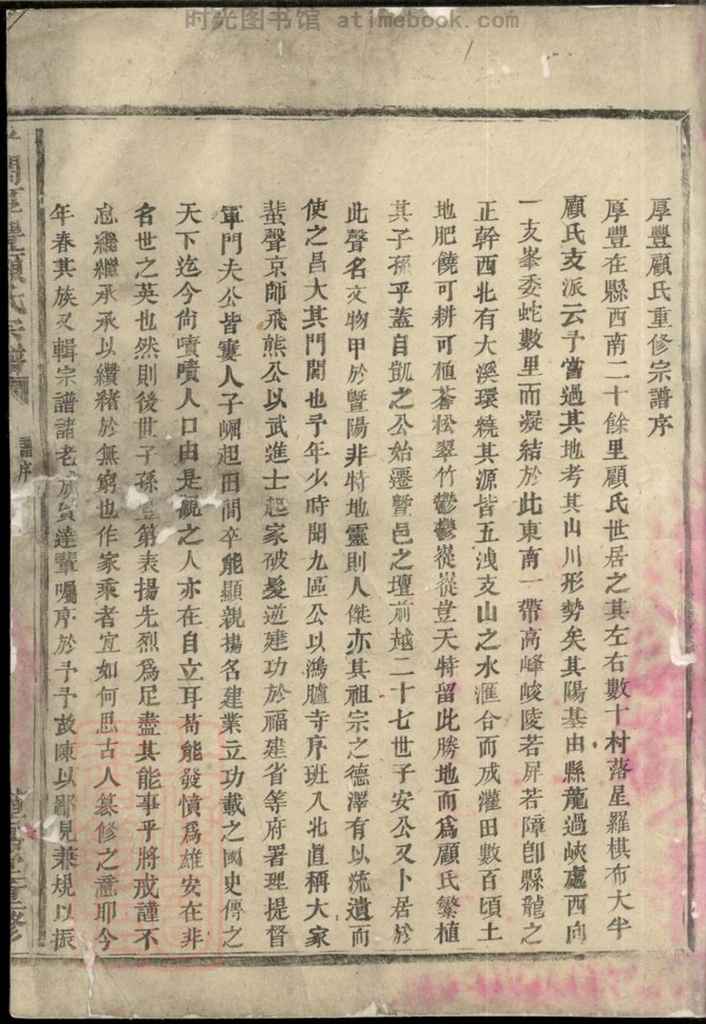 时光图书馆 atimebook.com
厚豐顧氏重修宗譜序
厚豐在縣西南二十餘里顧氏世居之其左右數十村落星羅棋布大半
顧氏支派云予嘗過其地考其山川形勢矣其陽基由縣龍過峽處西向
一支峯委蛇數里而凝結於此東南一帶高峰峻陵若屏若障卽縣龍之
正幹西北有大溪環繞其源皆五洩支山之水滙合而成灌田數百頃土
地肥饒可耕可植蒼松翠竹鬱鬱蓯蓯豈天特留此勝地而爲顧氏繁植
其子孫乎蓋自凱之公始遷暨邑之壇前越二十七世子安公又卜居於
此聲名文物甲於暨陽非特地靈則人傑亦其祖宗之德澤有以流遺而
使之昌大其門閭也予年少時聞九區公以鴻臚寺序班入北直稱大家
蜚聲京師飛熊公以武進士起家破髮逆建功於福建省等府署理提督
軍門夫公皆寠人子崛起田間卒能顯親揚名建業立功載之國史傳之
天下迄今尙嘖嘖人口由是觀之人亦在自立耳苟能發憤爲雄安在非
名世之英也然則後世子孫第表揚先烈爲足盡其能事乎將戒謹不
怠繼繼承承以纘緒於無窮也作家乘者宜如何思古人纂修之意耶今
年春其族又輯宗譜諸老成達輩囑序於予予敢陳以鄙見兼規以振
顧氏宗譜
譜序
重修